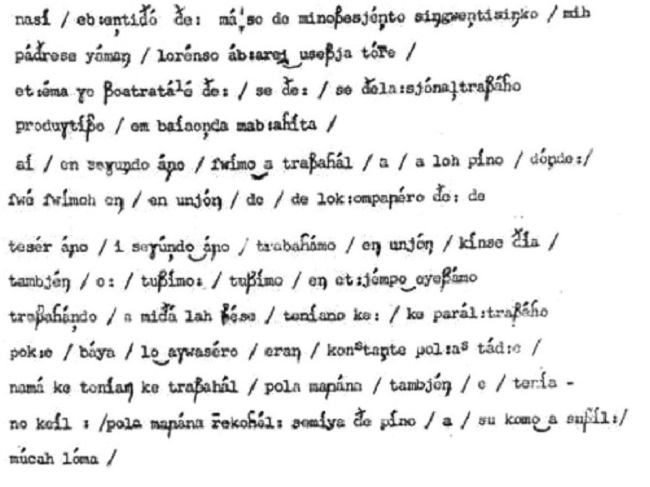 nasí / ebɪentiđó đe: má:so de minoβesjénto singwentisiŋko / mih
páđrese yáman / lorénso ábɪarei‿useβja tóře /
etɪéma yo βoatratáló đe: / se đe: / se đelaɪsjónaltraβáɦo
produɣtíβo / em baíaonda mabɪaɦíta /
aí / en seɣundo áɲo / fwímo‿a traβaɦál / a / a loh píno / dónde:/
fwé fwímoh eŋ / en unjóŋ / de / de lokːompaɲéro đe: de
tesér áɲo / i seɣúndo‿áɲo / trabaɦámo / eŋ unjóŋ / kínse đía /
tambjéŋ / o: / tuβímo: / tuβímo / eŋ etːjémpo‿ayeβámo
traβaɦándo / a miđá lah βése / teníano ke: / ke parálːtraβáɦo
pokɪe / báya / lo‿aywaséro / eraŋ / konˢtante polɪaˢ tádɪe /
namá ke teníaŋ ke traβaɦál / pola maɲána / tambjéŋ / e / tenía -
no keíl : /pola maɲána řekoɦél: semíya đe píno / a / su komo‿a suβíl:/
múcah lóma /